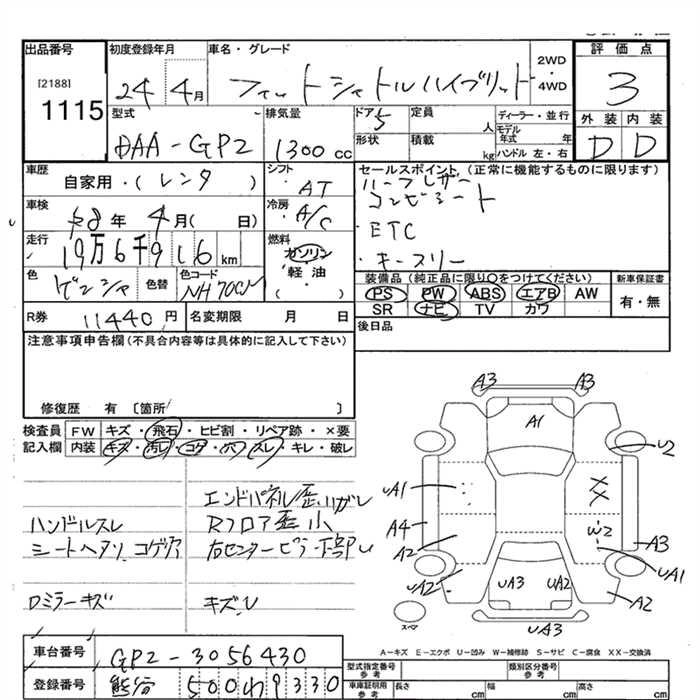 出品番号
[2188]
1115
初度登録年月
24年 4月
車名・グレード
フィットシャトルハイブリット
2WD
・
4WD
評価点
3
外装 内装
D D
型式
DAA-GP2
排気量
1300cc
ドア 5
形状
定員 人
積載 kg
ディーラー・並行
モデル年式 年
ハンドル 左・右
車歴
自家用・(レンタ)
シフト
AT
セールスポイント.(正常に機能するものに限ります)
ハーフレザー
コンビシート
・ETC
・キースリー
車検
R8年 4月( 日)
冷房
A/C
走行
19万6千916km
燃料
ガソリン
軽油
・( )
色
ゲンシャ
色替
色コード
NH700M
装備品(純正品に限り〇をつけてください)
PS PW ABS エアB AW
SR ナビ TV カワ
新車保証書
有・無
R券
11440円
名変期限 月 日
後日品
注意事項申告欄(不具合内容等は具体的に記入して下さい)
修復歴 有 〔箇所 〕
検査員記入欄
FW キズ・飛石・ヒビ割・リペア跡・×要
内装 キズ・汚レ・コゲ・穴・スレ・キレ・破レ
エンドパネル歪ハガレ
ハンドルスレ Rフロア歪小
シートヘタリ コゲ穴 右センターピラー下部U
Dミラーキズ キズ、U
A3 A3
A1
U2
UA1
XX
A4
W2
A2
A3
UA1
UA2
UA3 UA2
A2
UA3
スペア
A-キズ E-エクボ U-凹み W-補修跡 S-サビ C-腐食 XX-交換済
車台番号
GP2-3056430
登録番号
熊谷 500 わ 9330
型式指定番号
参考
類別区分番号
参考
車庫証明用
参考
長さ cm
幅 cm
高さ cm